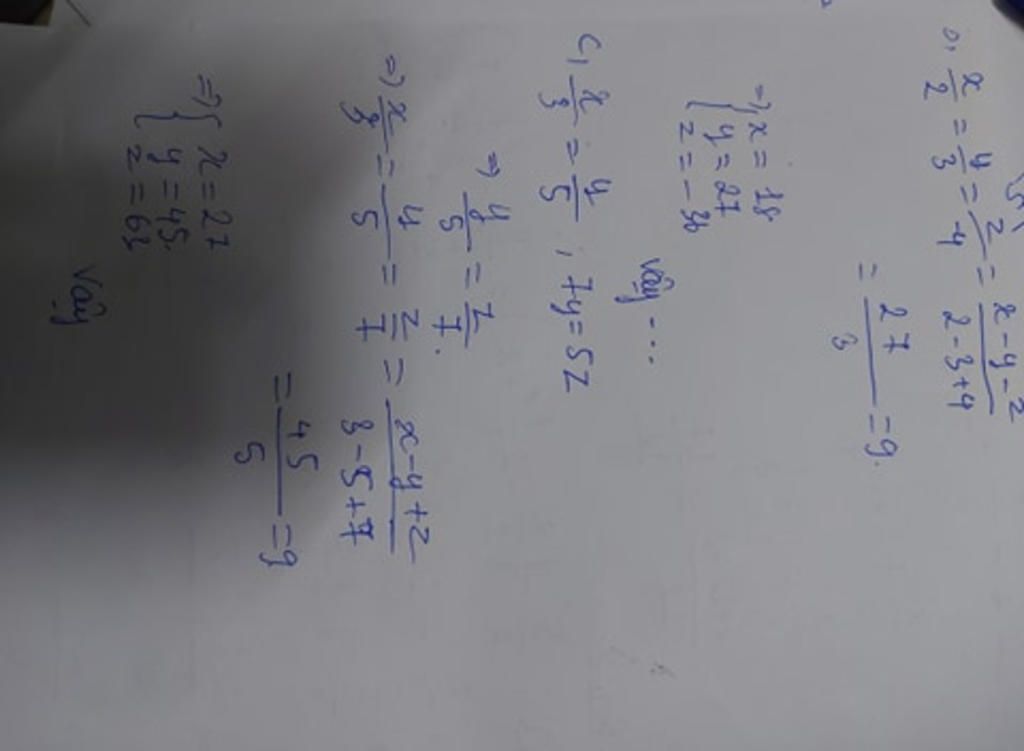 b, x/2 = y/3 = z/-4 = (x-y-z)/(2-3+4)
= 27/3 = 9.
=> { x = 18
y = 27
z = -36
Vậy ...
C, x/3 = y/5 ; 7y = 5z
=> y/5 = z/7.
=> x/3 = y/5 = z/7 = (x-y+z)/(3-5+7)
= 45/5 = 9
=> { x = 27
y = 45
z = 63
Vậy